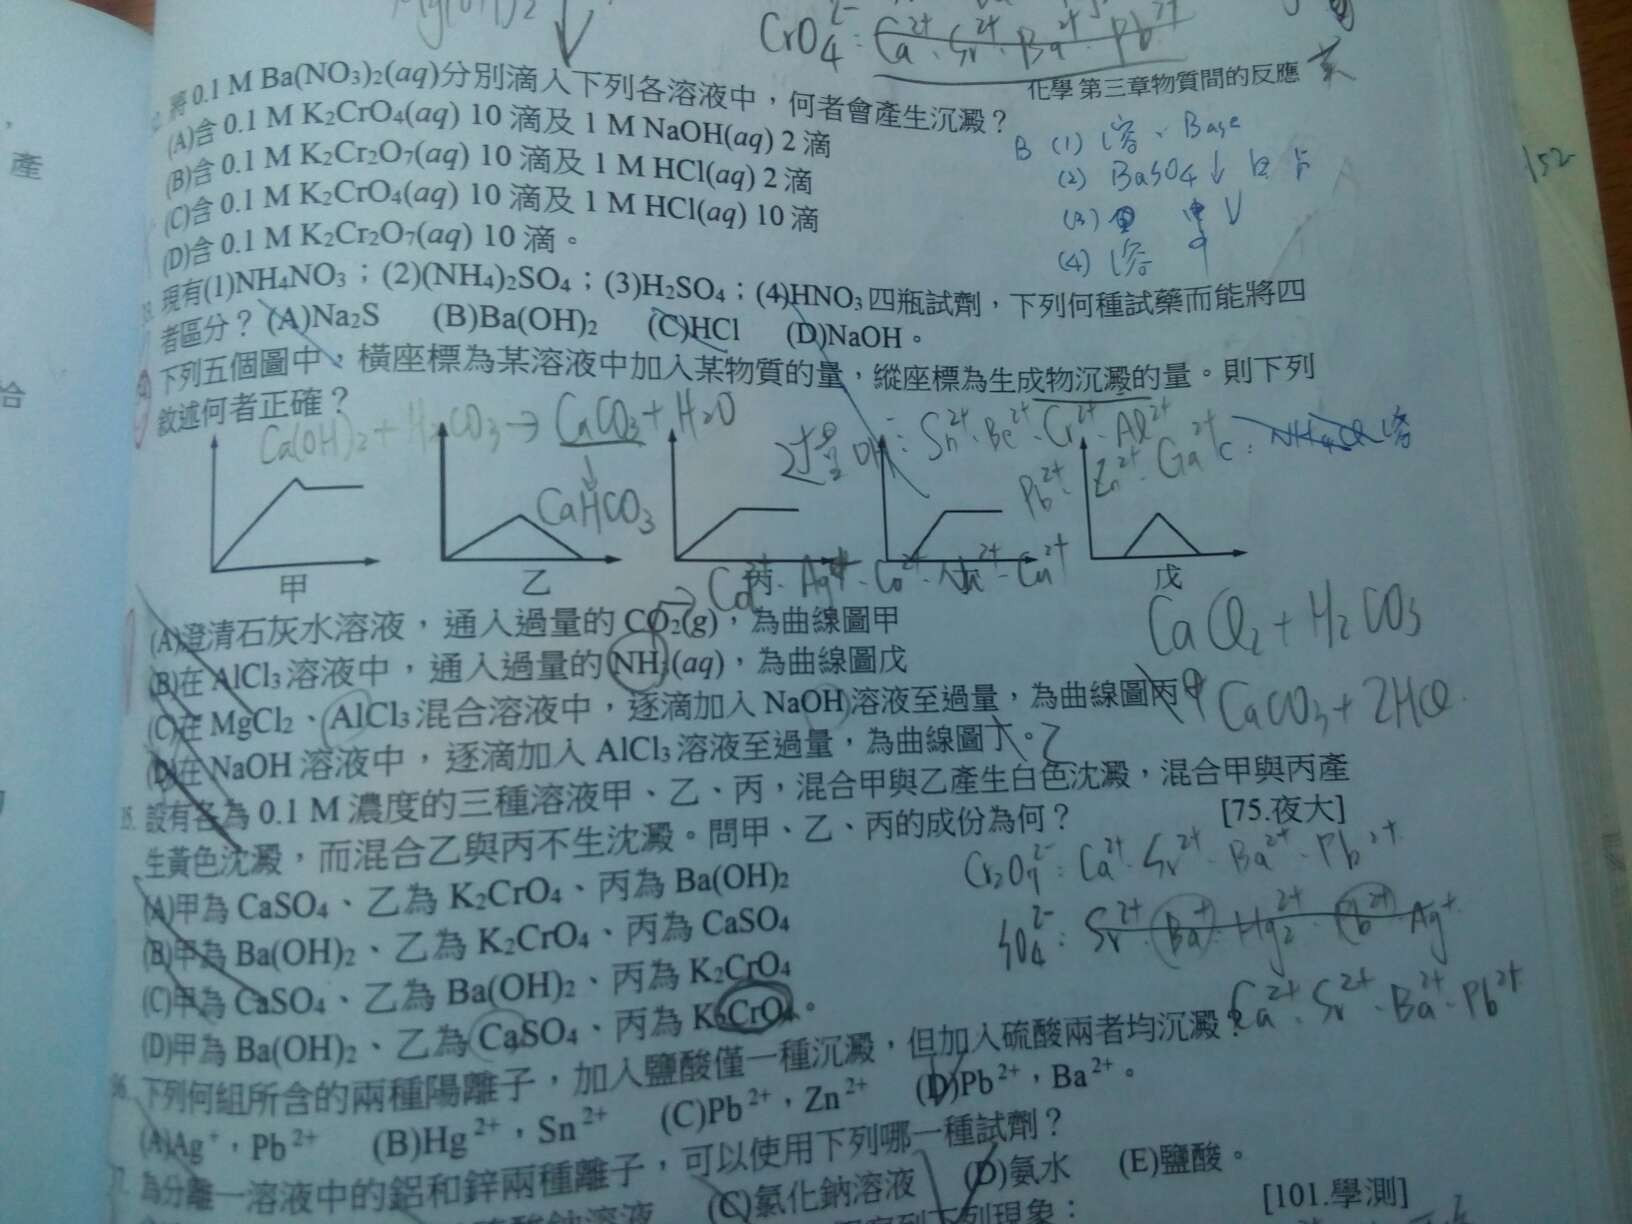 Mg(OH)2
CrO4 2- : Ca2+、Sr2+、Ba2+、Pb2+
化學 第三章物質間的反應
將 0.1 M Ba(NO3)2(aq)分別滴入下列各溶液中,何者會產生沉澱?
(A)含 0.1 M K2CrO4(aq) 10 滴及 1 M NaOH(aq) 2 滴
(B)含 0.1 M K2Cr2O7(aq) 10 滴及 1 M HCl(aq) 2 滴
(C)含 0.1 M K2CrO4(aq) 10 滴及 1 M HCl(aq) 10 滴
(D)含 0.1 M K2Cr2O7(aq) 10 滴。
B (1) 溶、Base
(2) BaSO4↓ 白
(3)
(4) 溶
152
現有(1)NH4NO3;(2)(NH4)2SO4;(3)H2SO4;(4)HNO3 四瓶試劑,下列何種試藥而能將四
者區分? (A)Na2S (B)Ba(OH)2 (C)HCl (D)NaOH。
下列五個圖中、橫座標為某溶液中加入某物質的量,縱座標為生成物沉澱的量。則下列
敘述何者正確?
Ca(OH)2 + H2CO3 → CaCO3 + H2O
CaHCO3
过量 OH- : Sn2+、Be2+、Cr2+、Al2+
Pb2+、Zn2+、Ga2+
C: NH4Cl 溶
甲 乙 丙 戊
Ag+、Co2+、Cu2+
(A)澄清石灰水溶液,通入過量的 CO2(g),為曲線圖甲
(B)在 AlCl3 溶液中,通入過量的 NH3(aq),為曲線圖戊
(C)在 MgCl2、AlCl3 混合溶液中,逐滴加入 NaOH 溶液至過量,為曲線圖丙 甲
(D)在 NaOH 溶液中,逐滴加入 AlCl3 溶液至過量,為曲線圖丁。乙
CaCl2 + H2CO3
CaCO3 + 2HCl
35. 設有各為 0.1 M 濃度的三種溶液甲、乙、丙,混合甲與乙產生白色沈澱,混合甲與丙產
生黃色沈澱,而混合乙與丙不生沈澱。問甲、乙、丙的成份為何? [75.夜大]
(A)甲為 CaSO4、乙為 K2CrO4、丙為 Ba(OH)2
(B)甲為 Ba(OH)2、乙為 K2CrO4、丙為 CaSO4
(C)甲為 CaSO4、乙為 Ba(OH)2、丙為 K2CrO4
(D)甲為 Ba(OH)2、乙為 CaSO4、丙為 K2CrO4。
Cr2O7 2- : Ca2+、Sr2+、Ba2+、Pb2+
SO4 2- : Sr2+、Ba2+、Hg2 2+、Pb2+、Ag+
Ca2+、Sr2+、Ba2+、Pb2+
36. 下列何組所含的兩種陽離子,加入鹽酸僅一種沉澱,但加入硫酸兩者均沉澱?
(A)Ag+,Pb2+ (B)Hg2+,Sn2+ (C)Pb2+,Zn2+ (D)Pb2+,Ba2+。
為分離一溶液中的鋁和鋅兩種離子,可以使用下列哪一種試劑?
(C)氯化鈉溶液 (D)氨水 (E)鹽酸。
[101.學測]
下列現象:
產
合